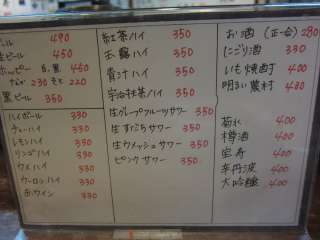 ビール 490
生ビール 450
ホッピー 白・黒 450
なか 230 そと 220
黒ビール 350
ハイボール 330
チューハイ 330
レモンハイ 330
リンゴハイ 330
ウメハイ 330
ウーロンハイ 330
赤ワイン 330
紅茶ハイ 350
玉露ハイ 350
青汁ハイ 350
宇治抹茶ハイ 350
生グレープフルーツサワー 350
生すだちサワー 350
生ウメッシュサワー 350
ピンクサワー 350
お酒(正一合) 280
にごり酒 350
いも焼酎 400
明るい農村 430
菊水 400
樽酒 400
400
辛丹波 400
大吟醸 400